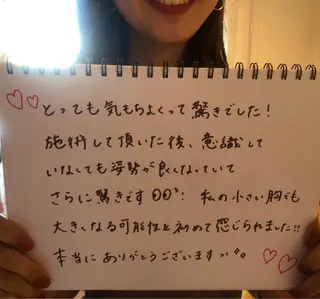 とっても気もちよくって驚きでした!
施術して頂いた後、意識して
いなくても姿勢が良くなっていて
さらに驚きです 私の小さい胸でも
大きくなる可能性を初めて感じられました!!
本当にありがとうございます